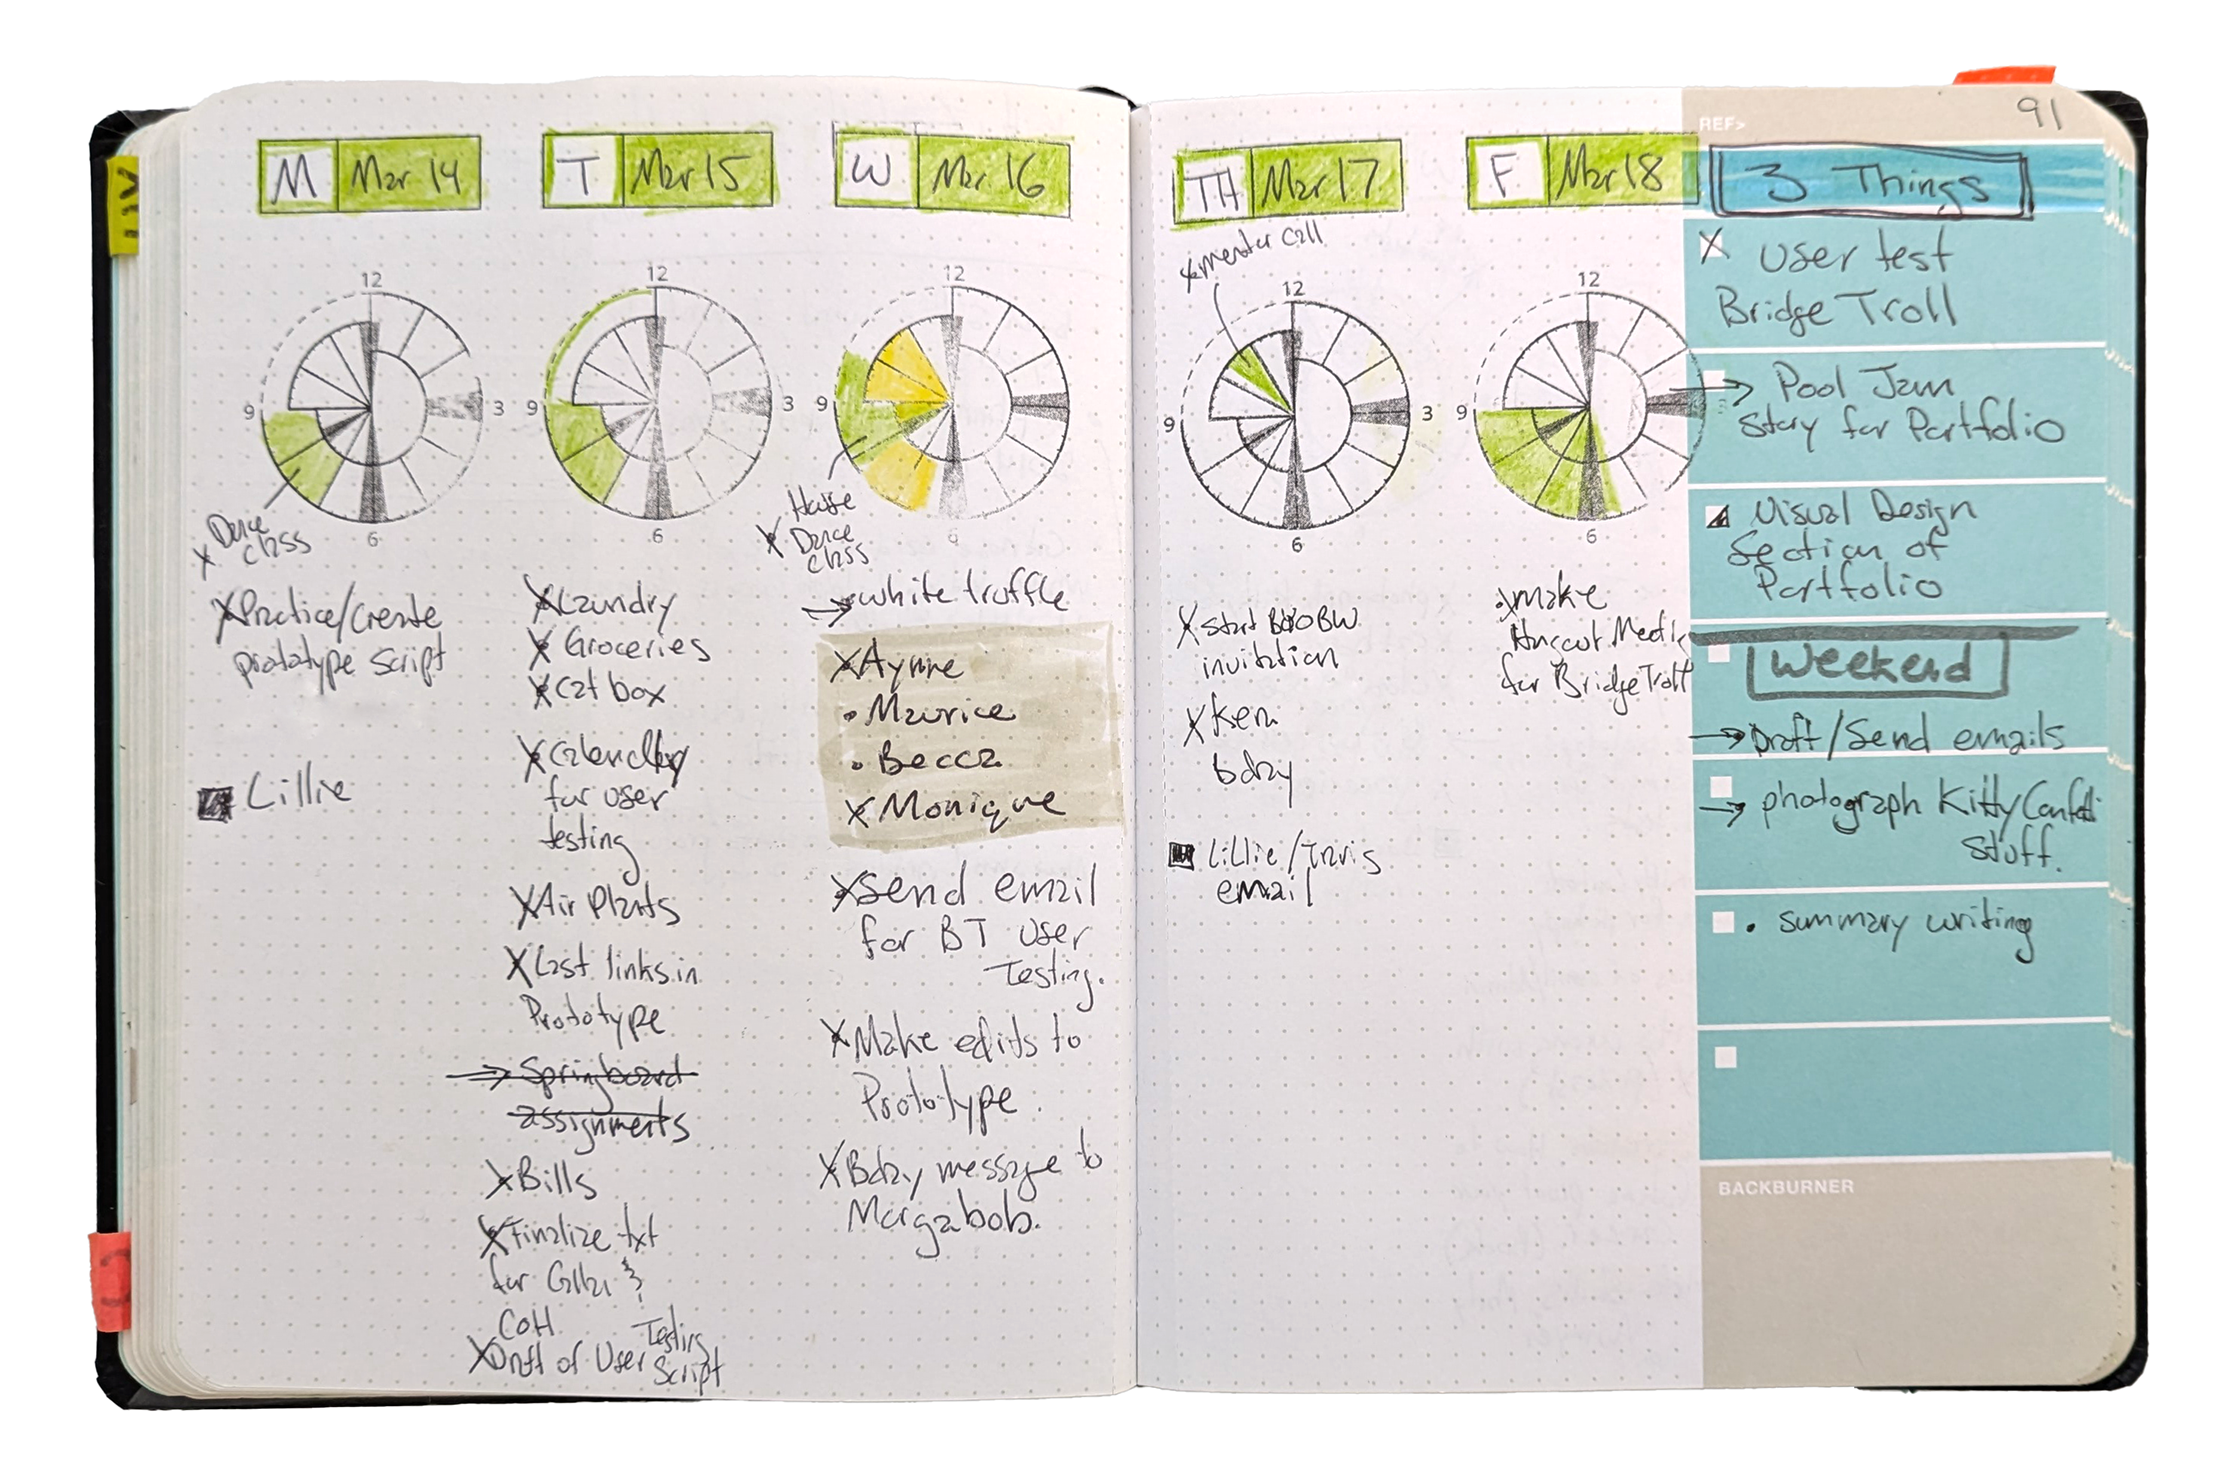 M Mar 14
12
3
6
9
x Dance class
x Practice/Create
prototype script
Lillie
T Mar 15
12
3
6
9
x Laundry
x Groceries
x Cat box
x Calendly
for user
testing
x Air Plants
x Last links in
Prototype
→ Springboard
assignments
x Bills
x Finalize txt
for
COH
x Draft of User Testing
Script
W Mar 16
12
6
9
x House
Dance
class
→ white truffle
x Aynne
• Maurice
• Becca
x Monique
x Send email
for BT User
Testing.
x Make edits to
Prototype
x Bday message to
Morgabob.
TH Mar 17
x mentor call
12
3
6
9
x start
invitation
x Ken
bday
Lillie/Travis
email
F Mar 18
12
3
6
9
x Make
Media
for Bridge Troll
REF>
91
3 Things
x User test
Bridge Troll
→ Pool Jam
story for Portfolio
Visual Design
Section of
Portfolio
Weekend
→ Draft/Send emails
→ photograph Kitty Confetti
stuff.
• summary writing
BACKBURNER